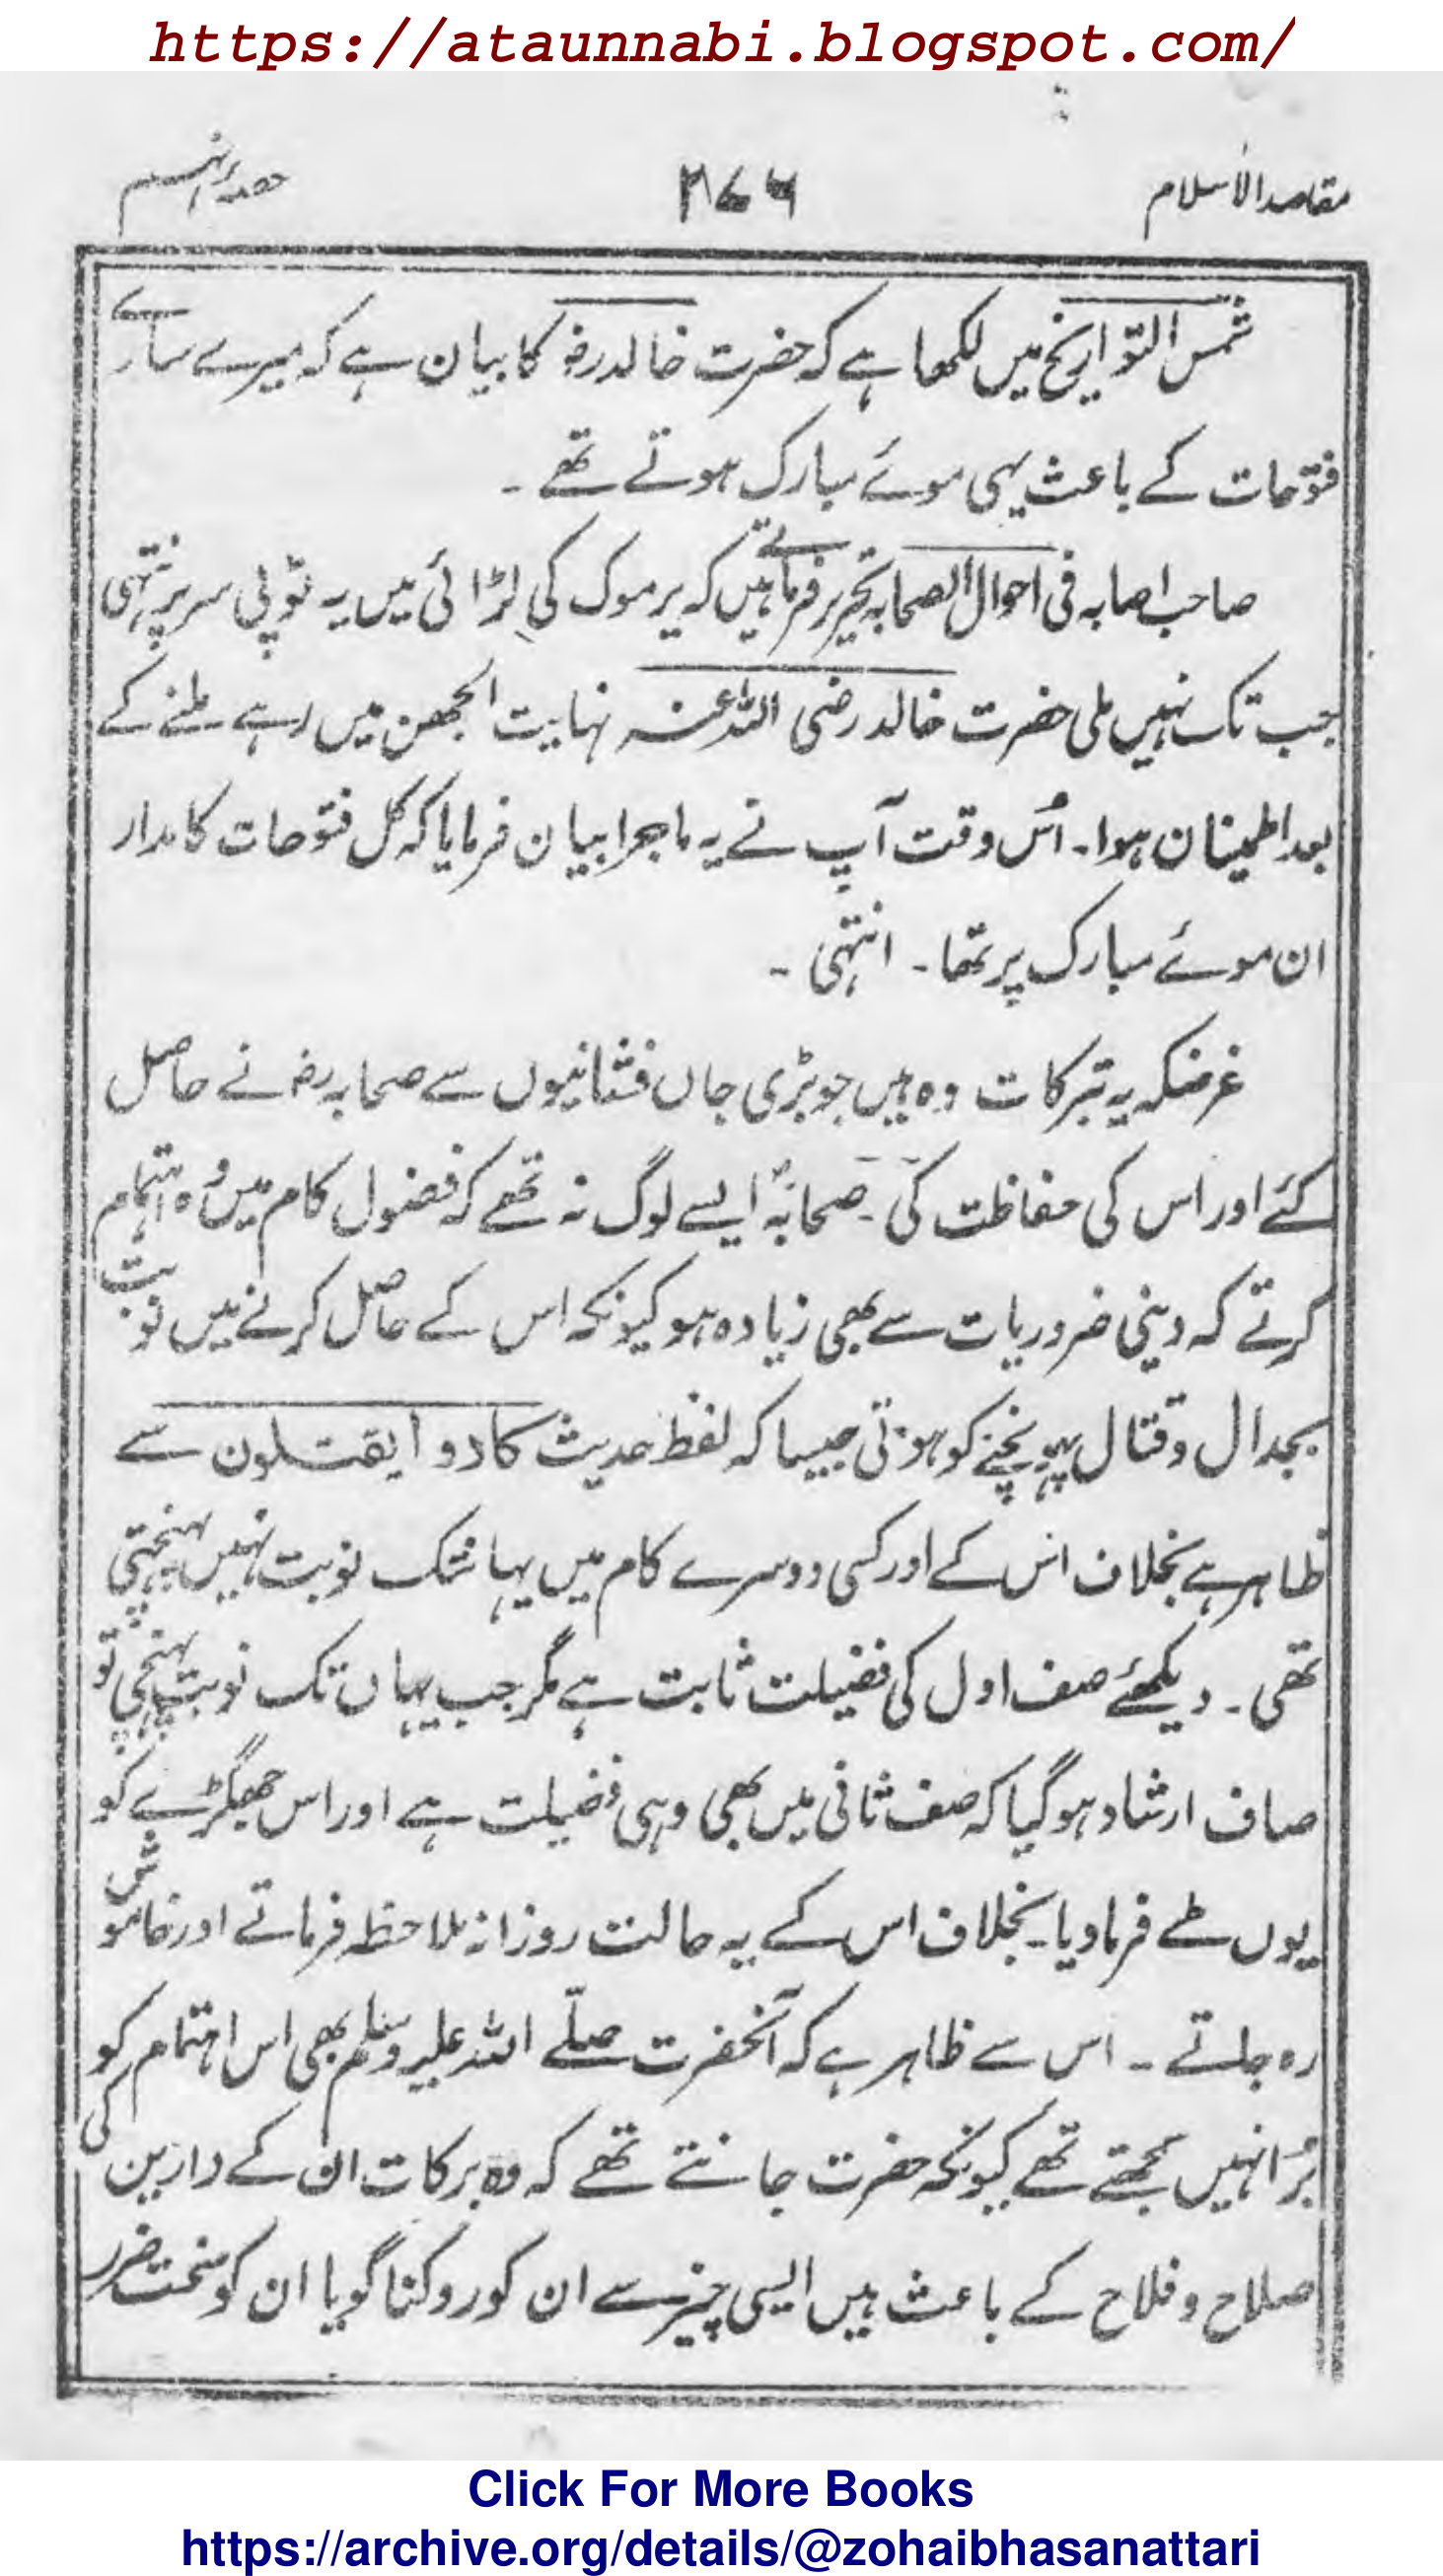 https://ataunnabi.blogspot.com/
مقاصد الاسلام ۲۷۶ حصہ
شمس التواریخ میں لکھا ہے کہ حضرت خالد رضؓ کا بیان ہے کہ میرے سارے
فتوحات کے باعث یہی موئے مبارک ہوتے تھے ۔
صاحب اصابہ فی احوال الصحابہ تحریر فرماتے ہیں کہ یرموک کی لڑائی میں یہ ٹوپی سر پر نتھی
جب تک نہیں ملی حضرت خالد رضی اللہ عنہ نہایت الجھن میں رہے ملنے کے
بعد اطمینان ہوا۔ اُس وقت آپ نے یہ ماجرا بیان فرمایا کہ کل فتوحات کا مدار
ان موئے مبارک پر تھا ۔ انتہیٰ ۔
غرضکہ یہ تبرکات وہ ہیں جو بڑی جاں فشانیوں سے صحابہ رضؓ نے حاصل
کئے اور اس کی حفاظت کی ۔ صحابہؓ ایسے لوگ نہ تھے کہ فضول کام میں وُہ اہتمام
کرتے کہ دینی ضروریات سے بھی زیادہ ہو کیونکہ اس کے حاصل کرنے میں نوبت
بجدال وقتال پہونچنے کو ہوتی جیسا کہ لفظ حدیث کادوا یقتلون سے
ظاہر ہے بخلاف اس کے اور کسی دوسرے کام میں یہانتک نوبت نہیں پہنچتی
تھی ۔ دیکھئے صف اول کی فضیلت ثابت ہے مگر جب یہاں تک نوبت پہنچی تو
صاف ارشاد ہوگیا کہ صف ثانی میں بھی وہی فضیلت ہے اور اس جھگڑے کو
یوں طے فرما دیا۔ بخلاف اس کے یہ حالت روزانہ ملاحظہ فرماتے اور خاموش
رہ جاتے ۔ اس سے ظاہر ہے کہ آنحضرت صلّے اللہ علیہ وسلم بھی اس اہتمام کو
بُرا نہیں سمجھتے تھے کیونکہ حضرت جانتے تھے کہ وہ برکات ان کے دارین کی
صلاح و فلاح کے باعث ہیں ایسی چیز سے ان کو روکنا گویا ان کو سخت ضرر
Click For More Books
https://archive.org/details/@zohaibhasanattari